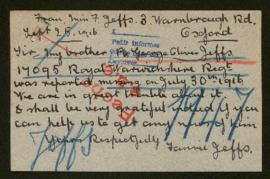 From, Mrs F. Jeffs. 3. Warnborough Rd.
Oxford
Sept 28. 1916
Sir My brother Pte George Oliver Jeffs
17095 Royal Warwickshire Regt
was reported missing on July 30th 1916
We are in great trouble about it
& shall be very grateful indeed if you
can help us to get any news of him
Yours Respectfully
Fannie Jeffs.
Jeffs